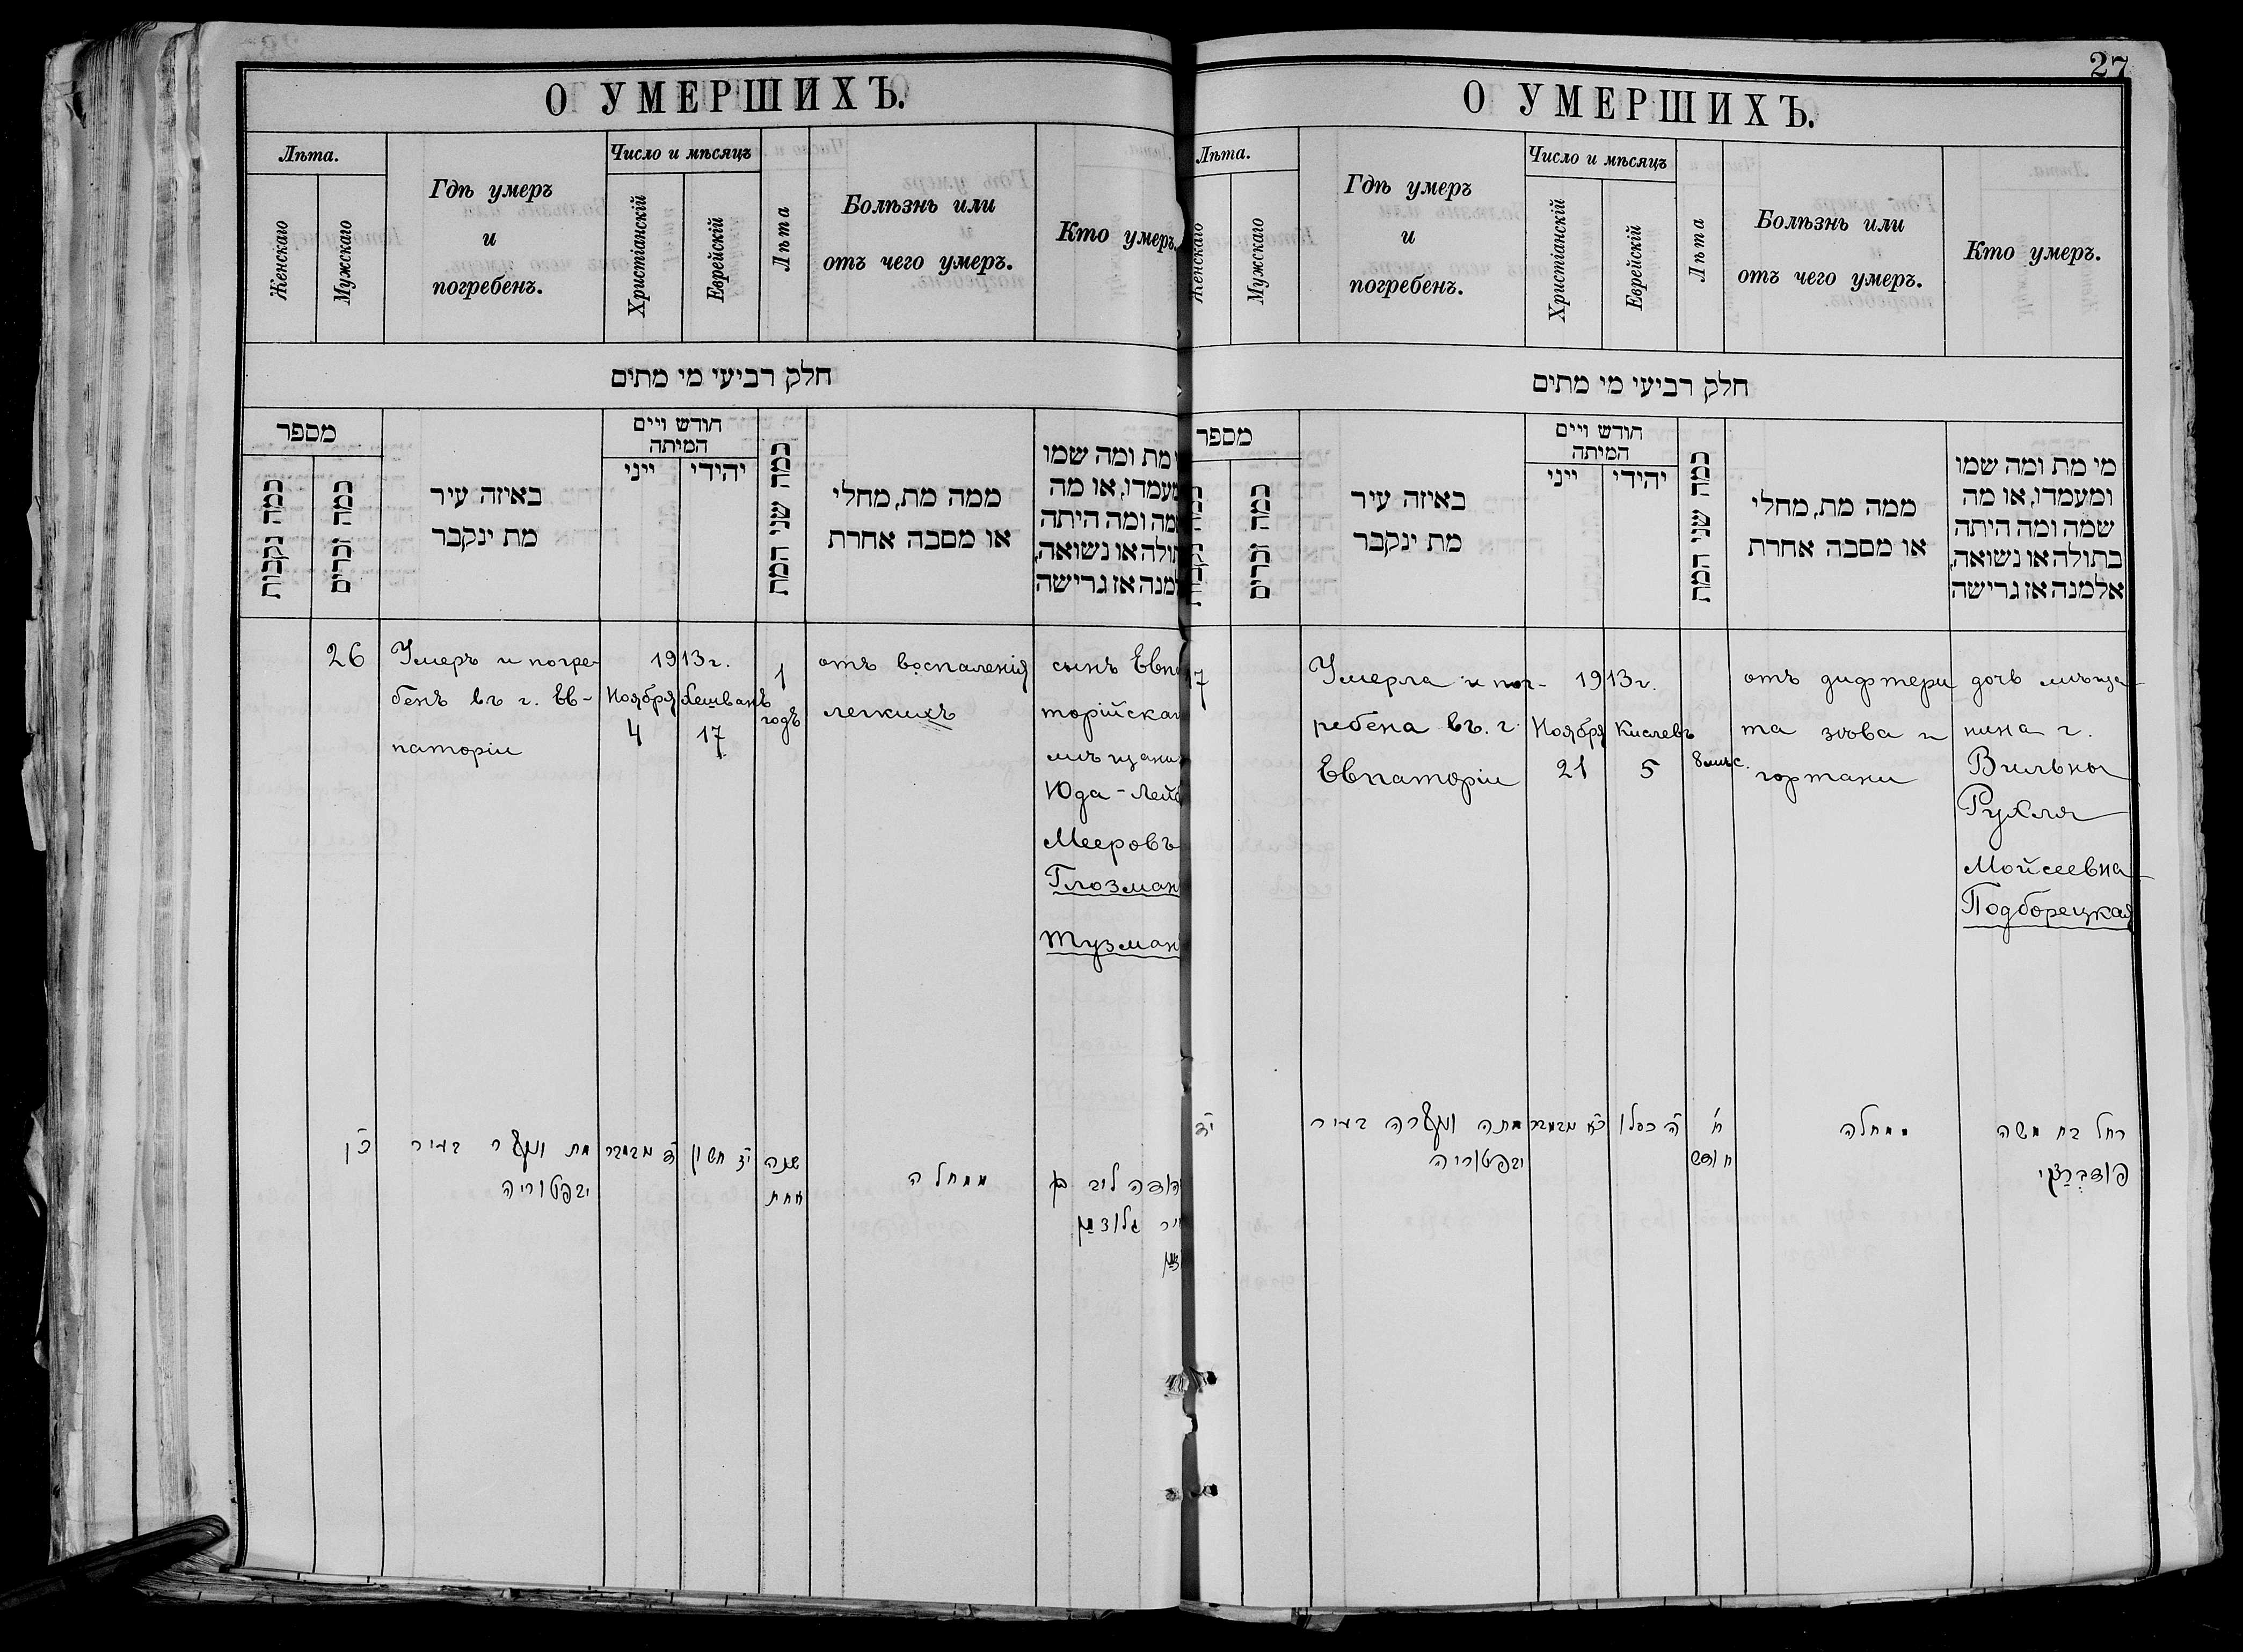 О УМЕРШИХЪ.
Лѣта.
Женскаго
Мужскаго
Гдѣ умеръ
и
погребенъ.
Число и мѣсяцъ
Христіанскій
Еврейскій
Лѣта
Болѣзнь или
отъ чего умеръ.
Кто умеръ.
חלק רביעי מי מתים
מספר
כמה נקבות
כמה זכרים
באיזה עיר
מת ינקבר
חודש ויים
המיתה
ייני
יהידי
כמה שני המת
ממה מת, מחלי
או מסבה אחרת
מת ומה שמו
מעמדו, או מה
מה ומה היתה
תולה או נשואה,
למנה אז גרישה
26
Умеръ и погре-
бенъ въ г. Ев-
паторіи
1913 г.
Ноября
4
Хешванъ
17
1
годъ
отъ воспаленія
легкихъ
сынъ Евпа
торійскаг
мѣщани
Юда-Лейб
Мееровъ
Глозман
Тузман
כ"ו
מת ונקבר בעיר
יבפטוריה
ד נבמבר
י"ז חשון
שנה
אחת
ממחלה
הודה ליב בן
יר גלוזמן
זמן
27
О УМЕРШИХЪ.
Лѣта.
Женскаго
Мужскаго
Гдѣ умеръ
и
погребенъ.
Число и мѣсяцъ
Христіанскій
Еврейскій
Лѣта
Болѣзнь или
отъ чего умеръ.
Кто умеръ.
חלק רביעי מי מתים
מספר
כמה זכרים
באיזה עיר
מת ינקבר
חודש ויים
המיתה
ייני
יהידי
כמה שני המת
ממה מת, מחלי
או מסבה אחרת
מי מת ומה שמו
ומעמדו, או מה
שמה ומה היתה
בתולה או נשואה,
אלמנה אז גרישה
7
Умерла и пог-
ребена въ. г.
Евпаторіи
1913 г.
Ноября
21
Кислевъ
5
8 мѣс.
отъ дифтери
та зѣва и
гортани
дочь мѣща-
нина г.
Вильны
Рухля
Мойсеевна
Подборецкая
מתה ונקברה בעיר
יבפטוריה
כ"א נבמבר
ה כסלו
ח
חודש
ממחלה
רחל בת משה
פודברצקי